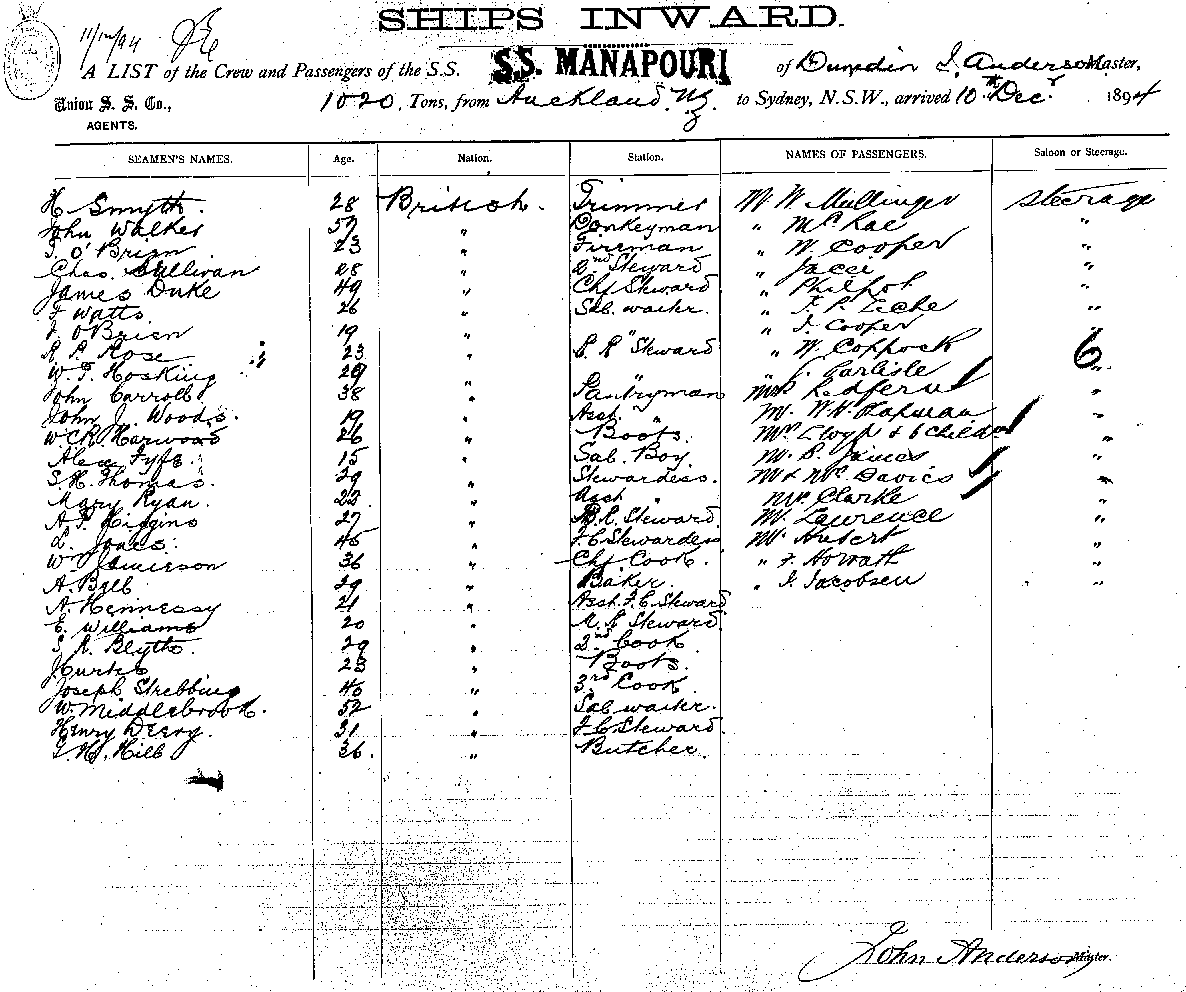 SHIPS INWARD.
11/12/94
A LIST of the Crew and Passengers of the S.S. S.S. MANAPOURI of Dunedin J. Anderson Master,
Union S. S. Co., 1020, Tons, from Auckland NZ to Sydney, N.S.W., arrived 10th Decr 1894
AGENTS.
SEAMEN'S NAMES. Age. Nation. Station. NAMES OF PASSENGERS. Saloon or Steerage.
H. Smyth. 28 British. Trimmer Mr W Mullinger steerage
John Walker 57 " Donkeyman " McRae "
J. O'Brien 23 " Fireman " W. Cooper "
Chas. Sullivan 28 " 2nd Steward " Jacci "
James Duke 49 " Chf Steward " Philpot "
F Watts 26 " Sal. waiter. " "
J. O'Brien 19 " " " J. Cooper
R. P. Rose 23 " S. R. Steward " W. Coppock 6
W. J. Hosking 29 " " " J. Carlisle "
John Carroll 38 " Pantryman Redfern "
John J. Woods. 19 " Asst. " Mr. "
W. C. R. Harwood 26 " Boots. Lloyd & 6 Childn "
Alex Fyfe. 15 " Sal. Boy. Mr. "
S. H. Thomas. 29 " Stewardess. Mr & Mrs Davies "
Mary Ryan. 22 " Asst " Clarke "
A. P. Higgins 27 " B. R. Steward Mr. Lawrence "
L. Jones. 45 " F. C. Stewardess Mr Hubert "
W. Jamieson 36 " Chf. Cook. " F. Horvath "
A. Bell 29 " Baker. " J. Jacobsen "
A. Hennessy 21 " Asst. F. C. Steward
E. Williams 20 " Steward
S. A. Blyth. 29 " 2nd Cook
J. Curtis 23 " Boots.
Joseph Strebbing 40 " 3rd Cook
W. Middlebrook. 52 " Sal. waiter.
Henry Deery. 31 " F. C. Steward.
G. H. Hill 36. " Butcher.
John Anderson Master.